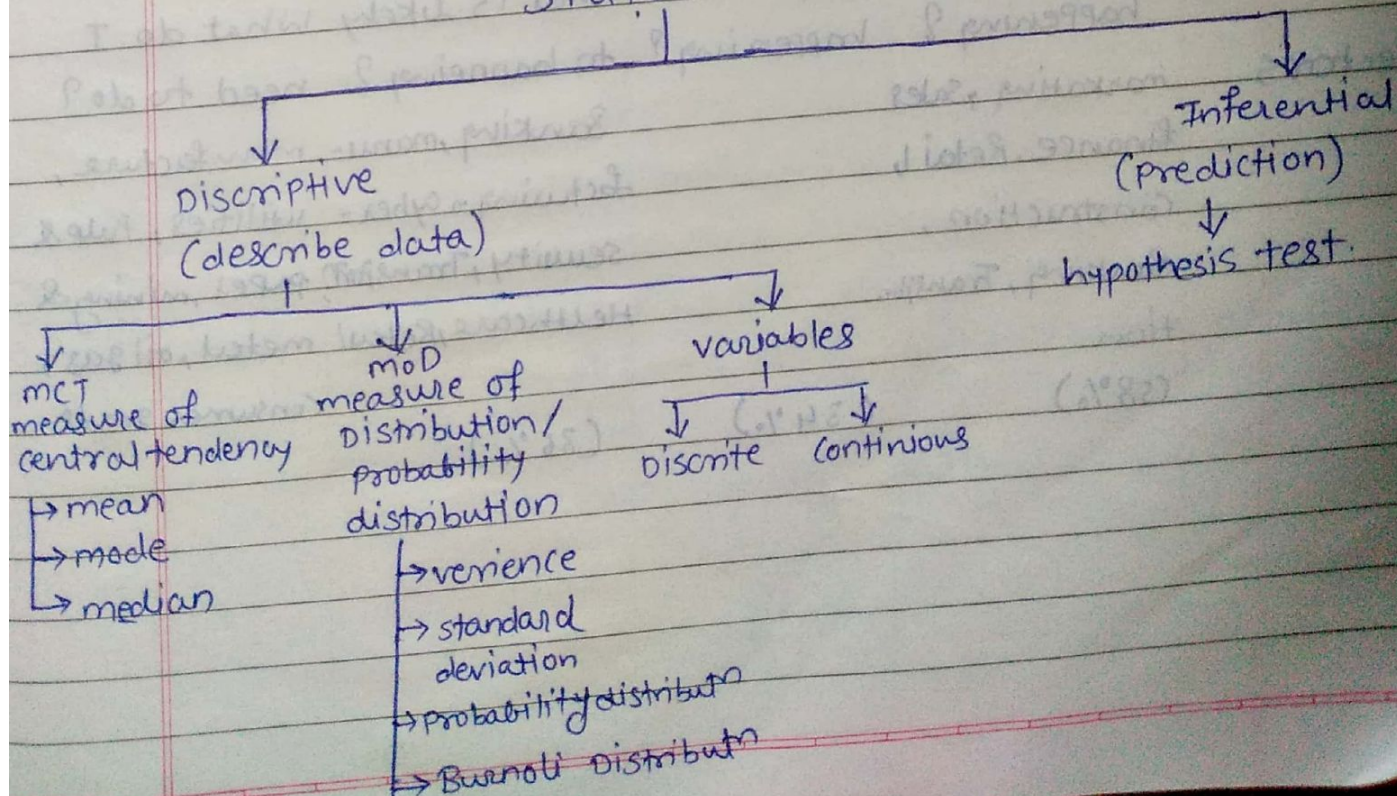 Discriptive
(describe data)
Inferential
(prediction)
hypothesis test.
MCT
measure of
central tendency
→ mean
→ mode
→ median
MOD
measure of
Distribution/
probability
distribution
→ verience
→ standard
deviation
→ probability distributn
→ Burnoli Distributn
variables
Discrite
continious